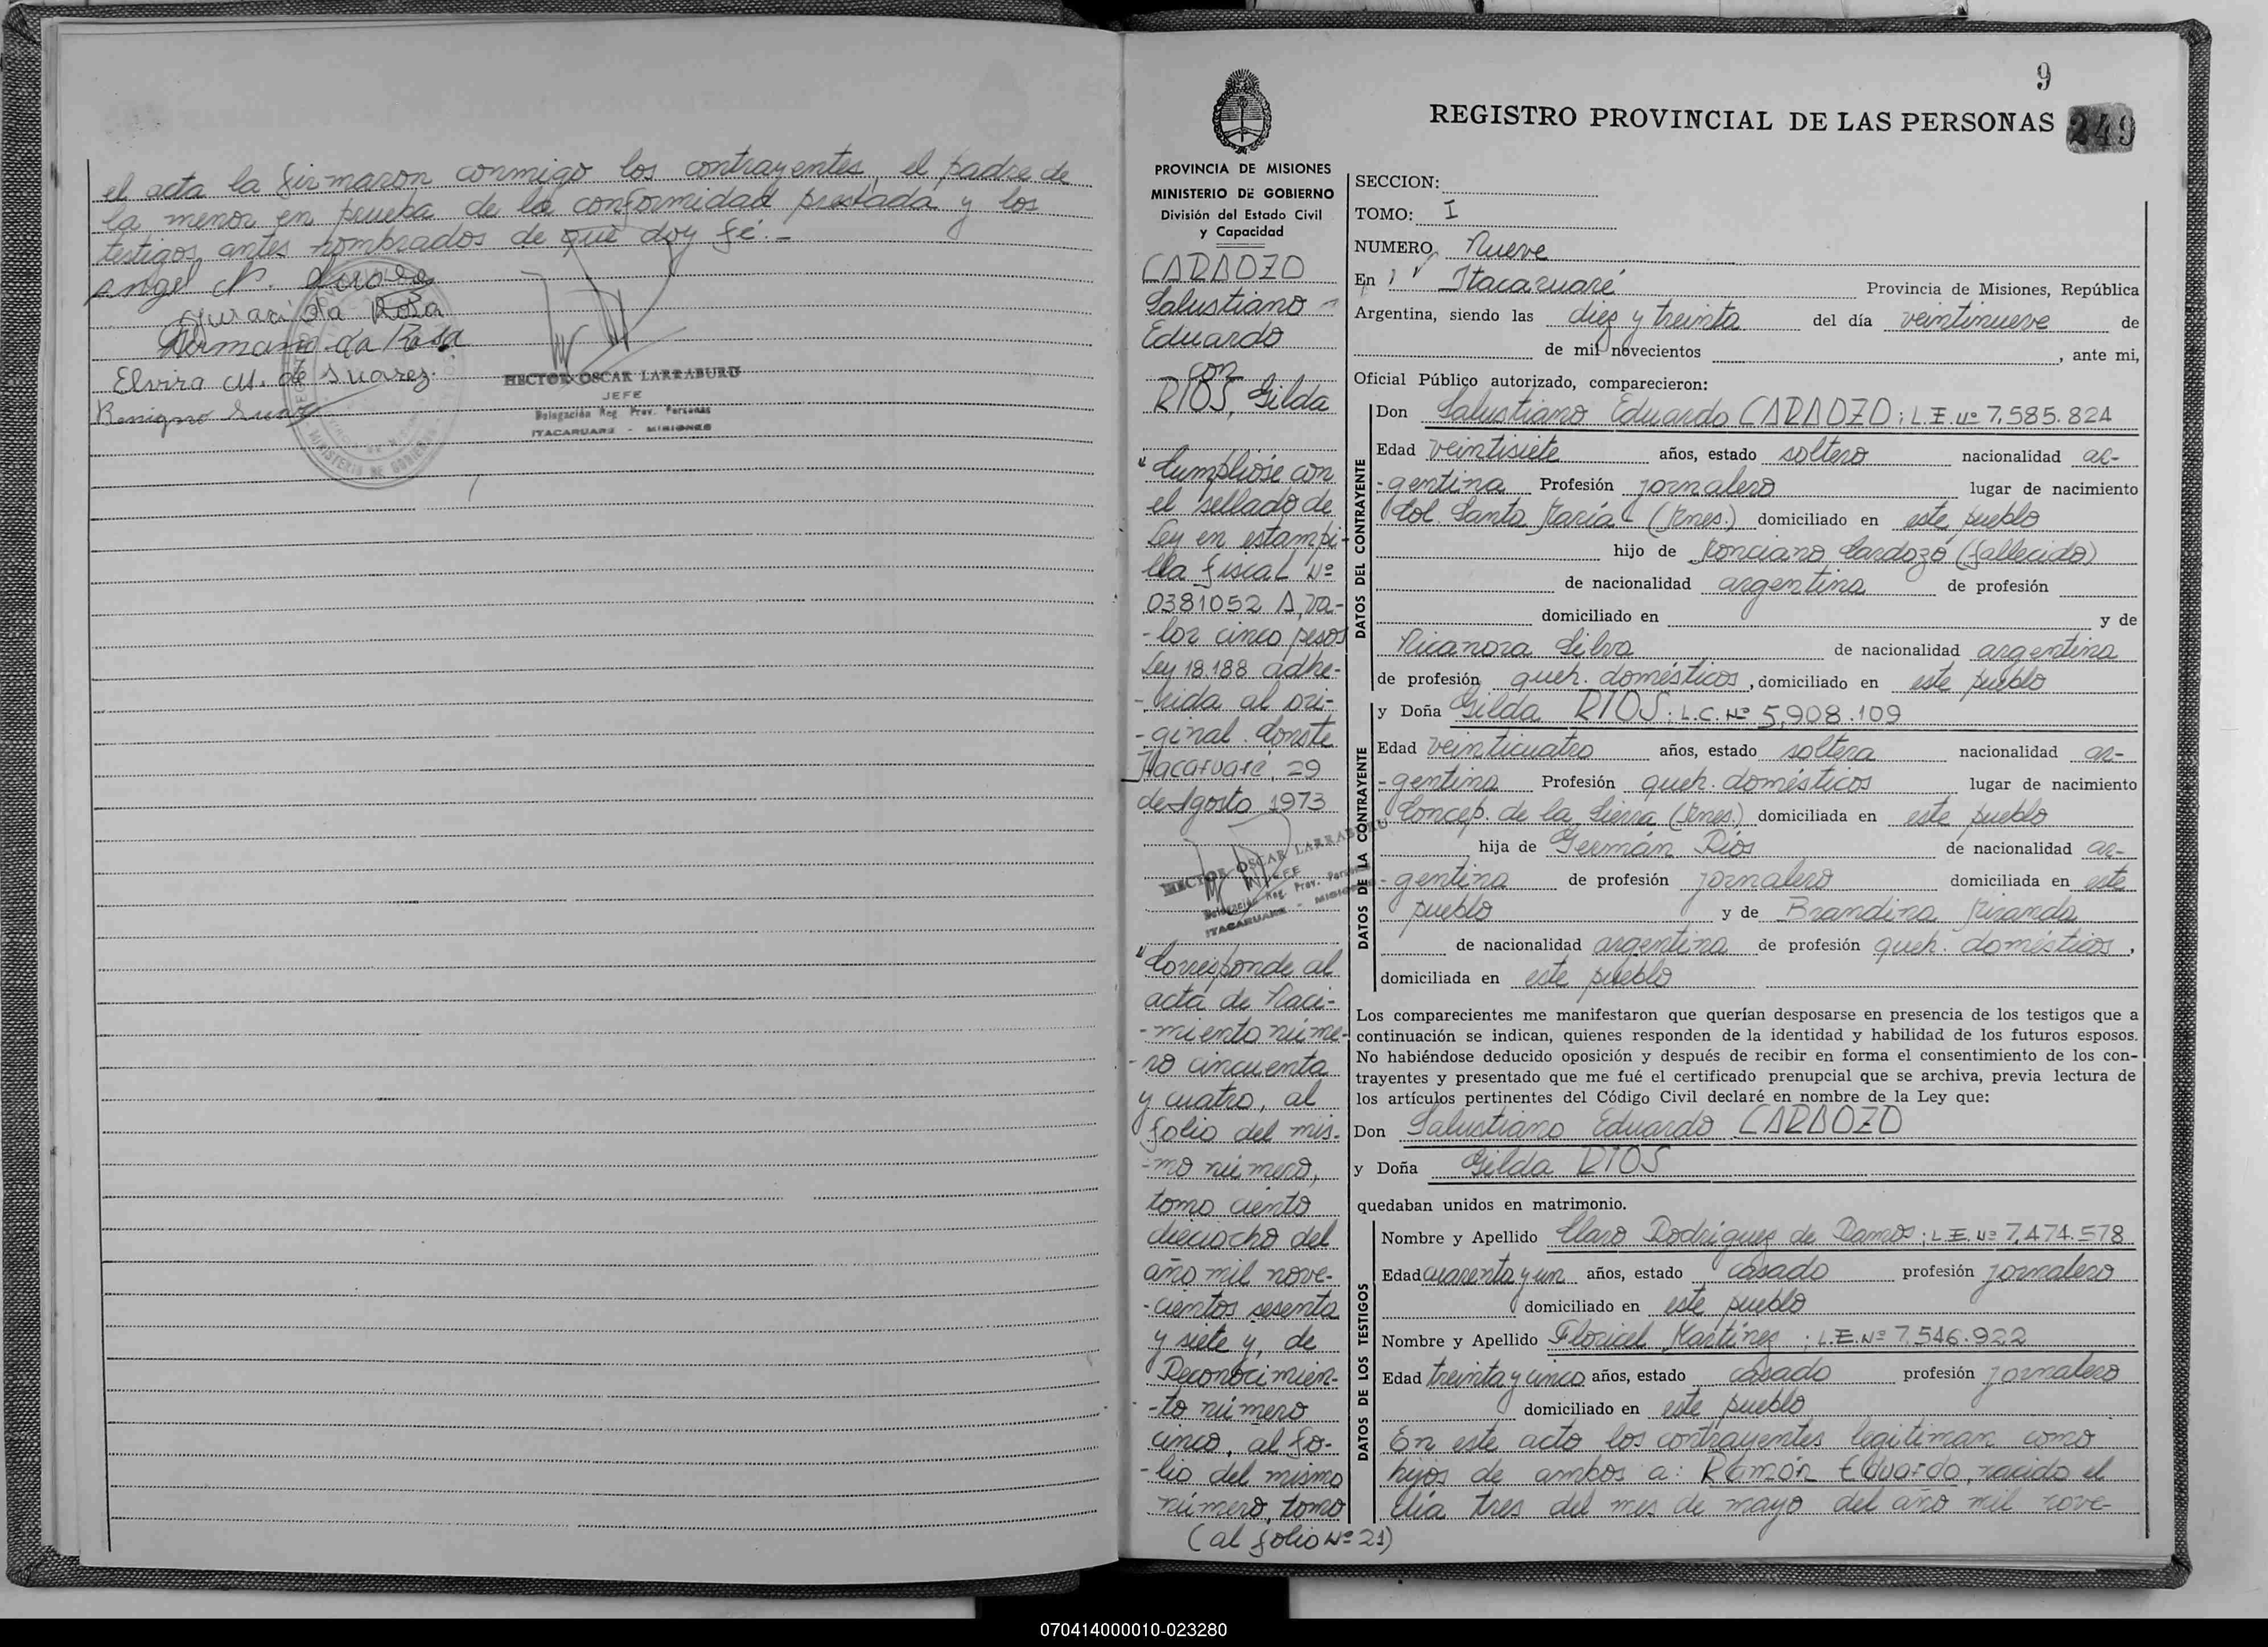 el acta la firmaron conmigo los contrayentes, el padre de
la menor en prueba de la conformidad prestada y los
testigos antes nombrados de que doy fé.-
Angel N.
da Rosa
da Rosa
Elvira M. de Suarez
Benigno Suarez
HECTOR OSCAR LARRABURU
JEFE
Delegación Reg. Prov. Personas
ITACARUARE - MISIONES
MINISTERIO DE GOBIERNO
9
REGISTRO PROVINCIAL DE LAS PERSONAS
249
PROVINCIA DE MISIONES
MINISTERIO DE GOBIERNO
División del Estado Civil
y Capacidad
CARDOZO
Salustiano
Eduardo
con
RIOS, Gilda
"Cumplióse con
el sellado de
Ley en estampi-
lla fiscal Nº
0381052 A, va-
-lor cinco pesos
Ley 18.188 adhe-
-rida al ori-
-ginal. Conste
Itacaruaré, 29
de Agosto 1973
HECTOR OSCAR LARRABURU
JEFE
Delegación Reg. Prov. Personas
ITACARUARE - MISIONES
"Corresponde al
acta de Naci-
-miento núme-
-ro cincuenta
y cuatro, al
folio del mis-
-mo número,
tomo ciento
dieciocho del
año mil nove-
-cientos sesenta
y siete y, de
Reconocimien-
-to número
cinco, al fo-
-lio del mismo
número, tomo
(al folio Nº 21)
SECCION:
TOMO: I
NUMERO Nueve
En Itacaruaré Provincia de Misiones, República
Argentina, siendo las diez y treinta del día veintinueve de
de mil novecientos , ante mi,
Oficial Público autorizado, comparecieron:
DATOS DEL CONTRAYENTE
Don Salustiano Eduardo CARDOZO; L.E. Nº 7.585.824
Edad veintisiete años, estado soltero nacionalidad ar-
-gentina Profesión jornalero lugar de nacimiento
Col. Santa María (Mnes.) domiciliado en este pueblo
hijo de Ponciano Cardozo (fallecido)
de nacionalidad argentina de profesión
domiciliado en y de
Nicanora Silva de nacionalidad argentina
de profesión queh. domésticos, domiciliado en este pueblo
DATOS DE LA CONTRAYENTE
y Doña Gilda RIOS; L.C. Nº 5.908.109
Edad veinticuatro años, estado soltera nacionalidad ar-
-gentina Profesión queh. domésticos lugar de nacimiento
Concep. de la Sierra (Mnes.) domiciliada en este pueblo
hija de Germán Ríos de nacionalidad ar-
-gentina de profesión jornalero domiciliada en este
pueblo y de Brandina Miranda
de nacionalidad argentina de profesión queh. domésticos,
domiciliada en este pueblo
Los comparecientes me manifestaron que querían desposarse en presencia de los testigos que a
continuación se indican, quienes responden de la identidad y habilidad de los futuros esposos.
No habiéndose deducido oposición y después de recibir en forma el consentimiento de los con-
trayentes y presentado que me fué el certificado prenupcial que se archiva, previa lectura de
los artículos pertinentes del Código Civil declaré en nombre de la Ley que:
Don Salustiano Eduardo CARDOZO
y Doña Gilda RIOS
quedaban unidos en matrimonio.
DATOS DE LOS TESTIGOS
Nombre y Apellido Claro Rodriguez de Ramos; L.E. Nº 7.474.578
Edad cuarenta y un años, estado casado profesión jornalero
domiciliado en este pueblo
Nombre y Apellido Floricel Martínez; L.E. Nº 7.546.922
Edad treinta y cinco años, estado casado profesión jornalero
domiciliado en este pueblo
En este acto los contrayentes legitiman como
hijos de ambos a: Ramón Eduardo, nacido el
día tres del mes de mayo del año mil nove-
070414000010-023280